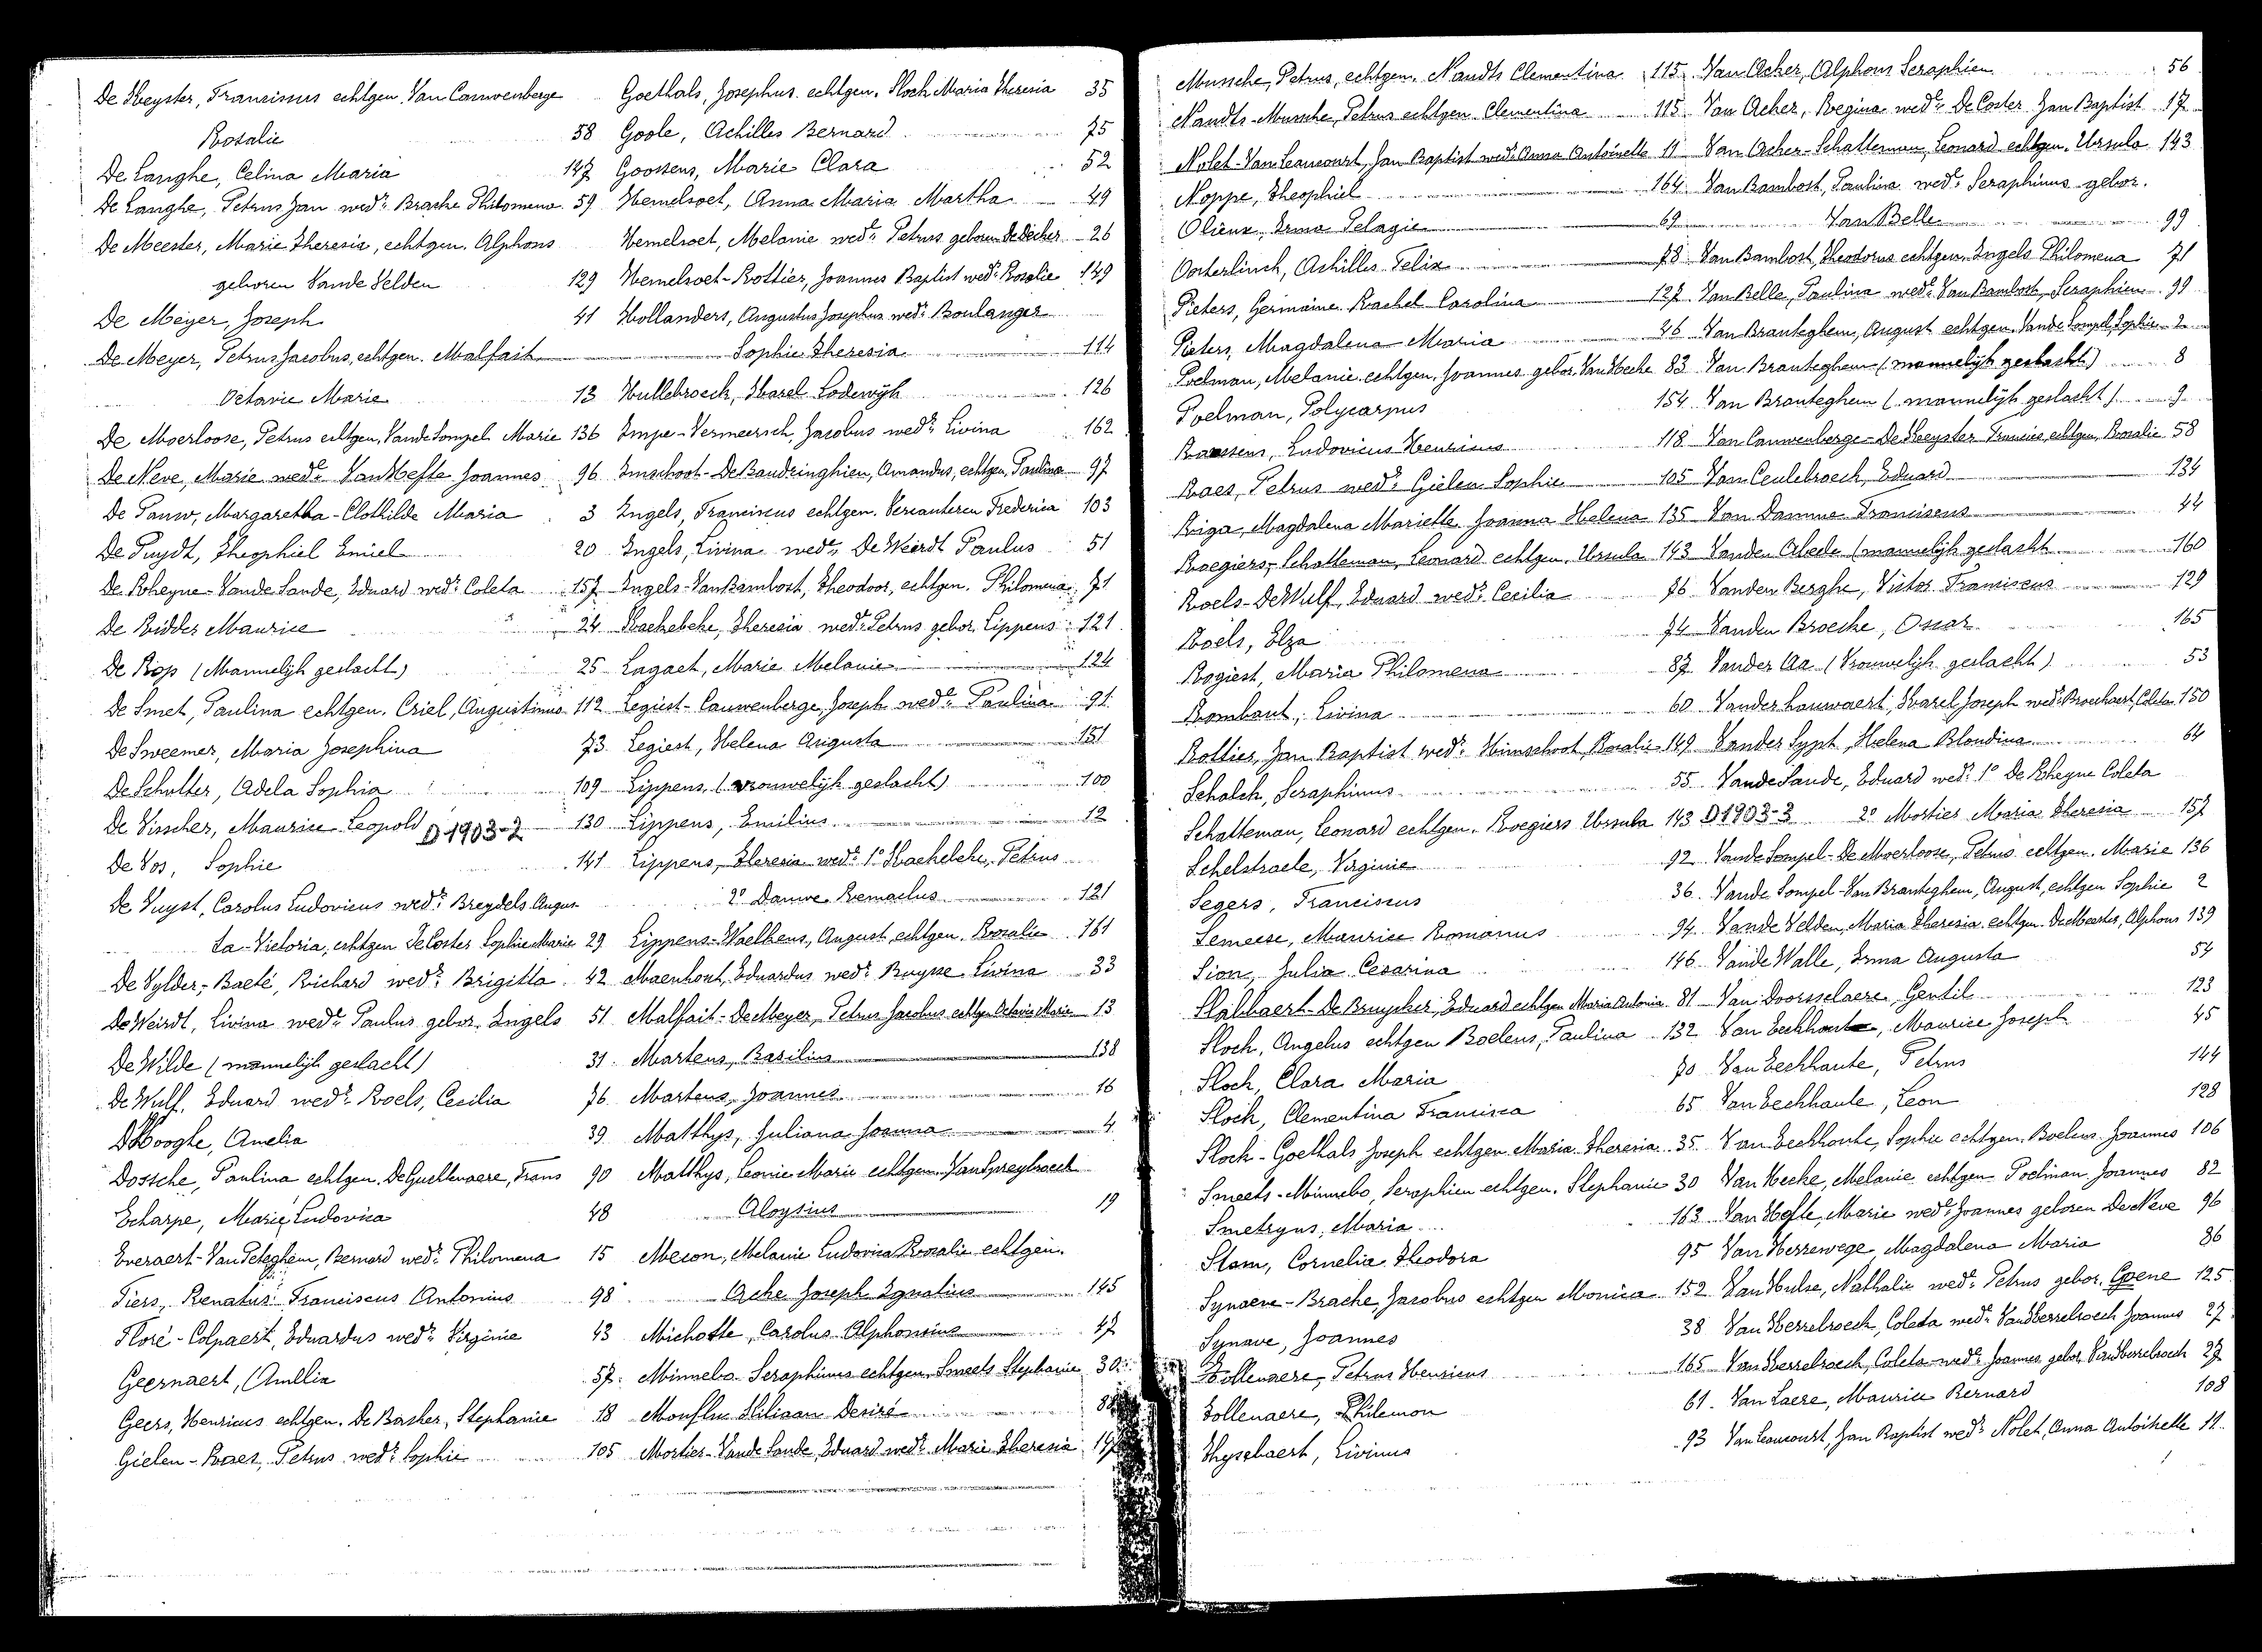 De Keyster, Franciscus echtgen. Van Cauwenberge
Rosalie 58
De Langhe, Celina Maria 147
De Langhe, Petrus Jan wedr. Brache Philomena 59
De Meester, Marie Theresia, echtgen. Alphons
geboren Vande Velden 129
De Meyer, Joseph 41
De Meyer, Petrus Jacobus, echtgen. Malfait
Octavie Marie 13
De Moerloose, Petrus echtgen. Vande Sompel Marie 136
De Neve, Marie wede. Van Hefte Joannes 96
De Pauw, Margaretha-Clothilde Maria 3
De Puydt, Theophiel Emiel 20
De Rheyne-Vande Sande, Eduard wedr. Coleta 157
De Ridder Maurice 24
De Rop (Mannelijk geslacht) 25
De Smet, Paulina echtgen. Criel, Augustinus 112
De Sweemer, Maria Josephina 73
De Schutter, Adela Sophia 109
De Visscher, Maurice Leopold D 1903-2 130
De Vos, Sophie 141
De Vuyst, Carolus Ludovicus wedr. Breydels Augus
ta-Victoria, echtgen De Coster Sophie Marie 29
De Vylder-Baeté, Richard wedr. Brigitta 42
De Weirdt, Livina wede. Paulus gebor. Engels 51
De Wilde (mannelijk geslacht) 31
De Wulf, Eduard wedr. Roels, Cecilia 76
D'Hooghe, Amelia 39
Dossche, Paulina echtgen. De Guchtenaere, Frans 90
Echarpe, Marie Ludovica 48
Everaert-Van Peteghem, Bernard wedr. Philomena 15
Fiers, Renatus Franciscus Antonius 98
Floré-Colpaert, Eduardus wedr. Virginie 43
Geernaert, Amelia 57
Geers, Henricus echtgen. De Backer, Stephanie 18
Gielen-Raes, Petrus wedr. Sophie 105
Goethals, Josephus echtgen. Sloch Maria Theresia 35
Goole, Achilles Bernard 75
Goossens, Marie Clara 52
Hemelsoet, Anna Maria Martha 49
Hemelsoet, Melanie wede. Petrus geboren De Decker 26
Hemelsoet-Rottier, Joannes Baptist wedr. Rosalie 149
Hollanders, Augustus Josephus wedr. Boulanger
Sophie Theresia 114
Hullebroeck, Karel Lodewijk 126
Impe-Vermeersch, Jacobus wedr. Livina 162
Imschoot-De Baudringhien, Amandus, echtgen. Paulina 97
Ingels, Franciscus echtgen. Vercauteren Frederica 103
Ingels, Livina wede. De Weirdt Paulus 51
Ingels-Van Bambost, Theodoor, echtgen. Philomena 71
Kachebeke, Theresia wede. Petrus gebor. Lippens 121
Lagaet, Marie Melanie 124
Legiest-Cauwenberge, Joseph wedr. Paulina 91
Legiest, Helena Augusta 151
Lippens, (vrouwelijk geslacht) 100
Lippens, Emilius 12
Lippens, Theresia wede. 1° Kachebeke, Petrus
2° Dauwe Remaclus 121
Lippens-Waelkens, August, echtgen. Rosalie 161
Maenhout, Eduardus wedr. Ruysse Livina 33
Malfait-De Meyer, Petrus Jacobus echtgen Octavia Marie 13
Martens, Basilius 138
Martens, Joannes 16
Matthys, Juliana Joanna 4
Matthys, Leonie Marie echtgen. Van Spreybroeck
Aloysius 19
Mecon, Melanie Ludovica Rosalie echtgen.
Ache Joseph Ignatius 145
Michotte, Carolus Alphonsius 47
Minnebo Seraphinus echtgen. Smeets Stephanie 30
Monflu Kiliaan Desiré 88
Mortier-Vande Sande, Eduard wedr. Marie Theresia
Mussche, Petrus, echtgen. Nandts Clementina 115
Nandts-Mussche, Petrus echtgen. Clementina 115
Nolet-Van Leaucourt, Jan Baptist wedr. Anna Antoinette 11
Noppe, Theophiel 164
Olieux, Irma Pelagie 69
Oosterlinck, Achilles Felix 78
Pieters, Germaine Rachel Carolina 127
Pieters, Magdalena Maria 46
Poelman, Melanie echtgen. Joannes gebor. Van Hecke 83
Poelman, Polycarpus 154
Raessens, Ludovicus Henricus 118
Raes, Petrus wedr. Gielen Sophie 105
Riga, Magdalena Mariette Joanna Helena 135
Roegiers-Schatteman, Leonard echtgen. Ursula 143
Roels-De Wulf, Eduard wedr. Cecilia 76
Roels, Elza 74
Rogiest, Maria Philomena 87
Rombaut, Livina 60
Rottier, Jan Baptist wedr. Himschoot, Rosalie 149
Schalck, Seraphinus 55
Schatteman, Leonard echtgen. Roegiers Ursula 143
Schelstraete, Virginie 92
Segers, Franciscus 36
Semeese, Maurice Romanus 94
Sion, Julia Cesarina 146
Slabbaert-De Bruycker, Eduard echtgen Maria Antonia 81
Sloch, Angelus echtgen Boelens, Paulina 132
Sloch, Clara Maria 70
Sloch, Clementina Francisca 65
Sloch-Goethals Joseph echtgen. Maria Theresia 35
Smeets-Minnebo, Seraphien echtgen. Stephanie 30
Smetryns, Maria 163
Stam, Cornelia Theodora 95
Synaeve-Brache, Jacobus echtgen Monica 152
Synave, Joannes 38
Tollenaere, Petrus Henricus 165
Tollenaere, Philemon 61
Thysebaert, Livinus 93
Van Acker, Alphons Seraphien 56
Van Acker, Regina wede. De Coster Jan Baptist 17
Van Acker-Schatteman, Leonard echtgen. Ursula 143
Van Bambost, Paulina wede. Seraphinus gebor.
Van Belle 99
Van Bambost, Theodorus echtgen. Ingels Philomena 71
Van Belle, Paulina wede. Van Bambost, Seraphien 99
Van Branteghem, August echtgen. Vande Sompel, Sophie 2
Van Branteghem (mannelijk geslacht) 8
Van Branteghem (mannelijk geslacht) 9
Van Cauwenberge-De Keyster Francies, echtgen. Rosalie 58
Van Ceulebroeck, Eduard 134
Van Damme Franciscus 44
Vanden Abeele (mannelijk geslacht 160
Vanden Berghe, Victor Franciscus 129
Vanden Broecke, Oscar 165
Vander Aa (Vrouwelijk geslacht) 53
Vanderhauwaert, Karel Joseph wedr. Broeckaert, Coleta 150
Vander Sypt, Helena Blondina 64
Vande Sande, Eduard wedr. 1° De Rheyne Coleta
D 1903-3 2° Mortier Maria Theresia 157
Vande Sompel-De Moerloose, Petrus echtgen. Marie 136
Vande Sompel-Van Branteghem, August, echtgen Sophie 2
Vande Velden, Maria Theresia echtgen. De Meester, Alphons 139
Vande Walle, Irma Augusta 54
Van Doorsselaere, Gentil 123
Van Eeckhoute, Maurice Joseph 45
Van Eeckhaute, Petrus 144
Van Eeckhaute, Leon 128
Van Eeckhoute, Sophie echtgen. Boelens Joannes 106
Van Hecke, Melanie echtgen. Poelman Joannes 82
Van Hefte, Marie wede. Joannes geboren De Neve 96
Van Herrewege Magdalena Maria 86
Van Hulse, Nathalie wede. Petrus gebor. Goene 125
Van Kerrebroeck, Coleta wede. Van Kerrebroeck Joannes 27
Van Kerrebroeck, Coleta wede. Joannes gebor. Van Kerrebroeck 27
Van Laere, Maurice Bernard 108
Van Leaucourt, Jan Baptist wedr. Nolet, Anna Antoinette 11